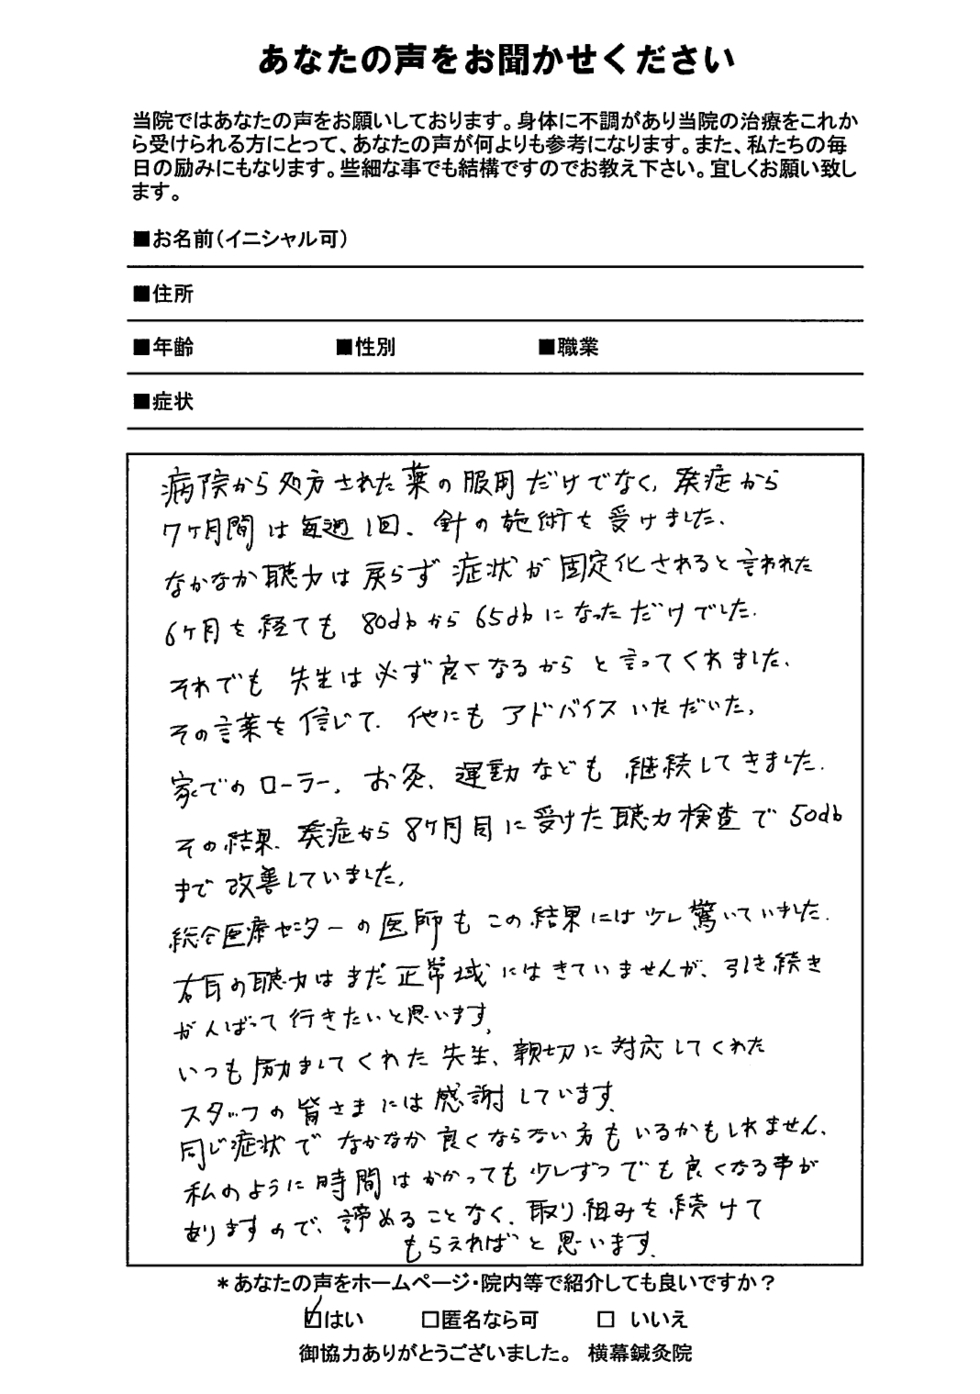 あなたの声をお聞かせください
当院ではあなたの声をお願いしております。身体に不調があり当院の治療をこれか
ら受けられる方にとって、あなたの声が何よりも参考になります。また、私たちの毎
日の励みにもなります。些細な事でも結構ですのでお教え下さい。宜しくお願い致し
ます。
■お名前(イニシャル可)
■住所
■年齢 ■性別 ■職業
■症状
病院から処方された薬の服用だけでなく、発症から
7ヶ月間は毎週1回、針の施術を受けました。
なかなか聴力は戻らず症状が固定化されると言われた
6ヶ月を経ても80dbから65dbになっただけでした。
それでも先生は必ず良くなるからと言ってくれました。
その言葉を信じて、他にもアドバイスいただいた、
家でのローラー、お灸、運動なども継続してきました。
その結果、発症から8ヶ月目に受けた聴力検査で50db
まで改善していました。
総合医療センターの医師もこの結果には少し驚いていました。
右耳の聴力はまだ正常域にはきていませんが、引き続き
がんばって行きたいと思います。
いつも励ましてくれた先生、親切に対応してくれた
スタッフの皆さまには感謝しています。
同じ症状でなかなか良くならない方もいるかもしれません、
私のように時間はかかっても少しずつでも良くなる事が
ありますので、諦めることなく、取り組みを続けて
もらえればと思います。
*あなたの声をホームページ・院内等で紹介しても良いですか？
☑はい □匿名なら可 □ いいえ
御協力ありがとうございました。 横幕鍼灸院